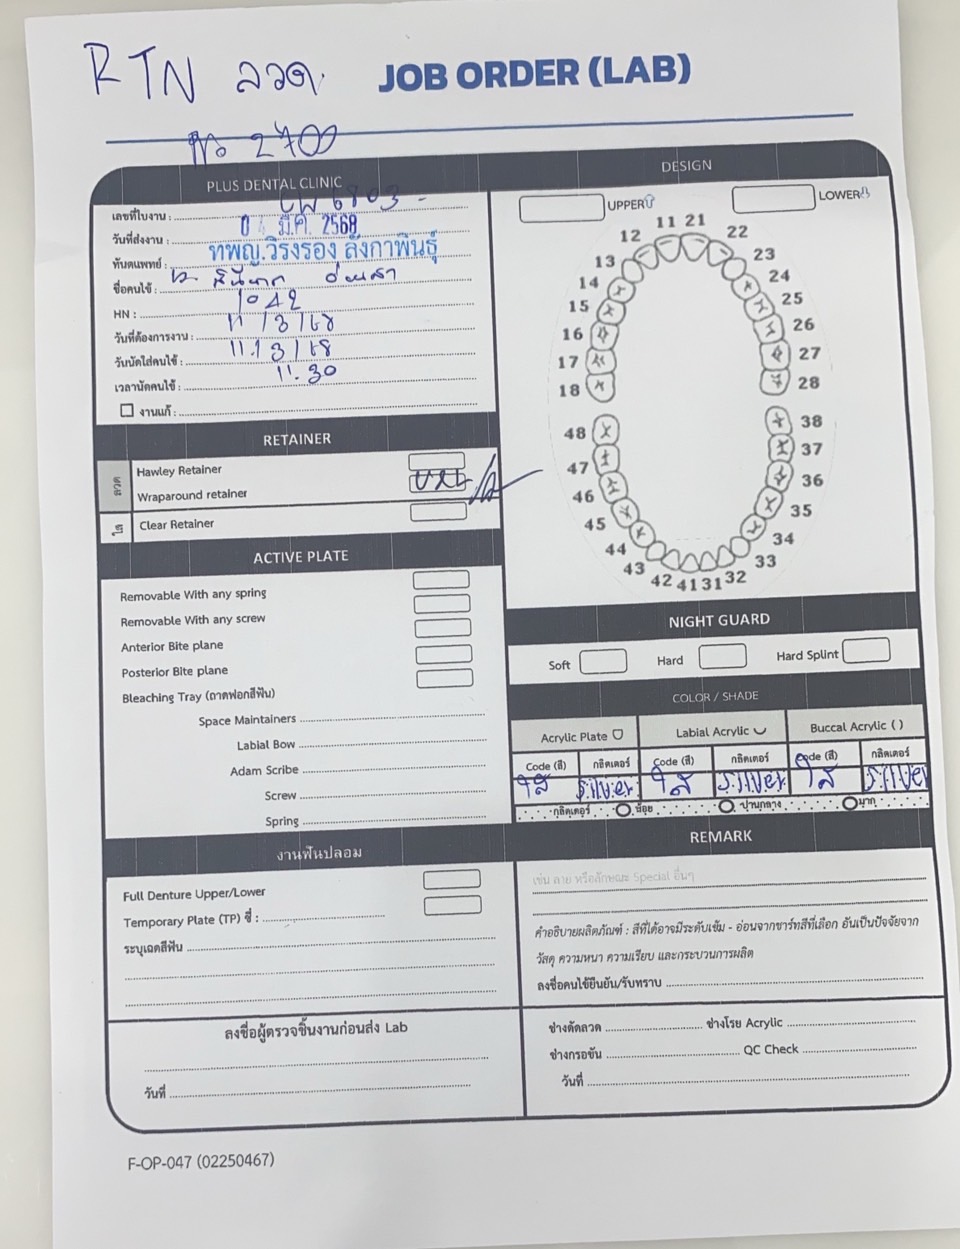 RTN ลวด
JOB ORDER (LAB)
2700
PLUS DENTAL CLINIC
เลขที่ใบงาน : CW6803-
วันที่ส่งงาน : 0 มี.ค. 2568
ทันตแพทย์ : ทพญ.วิรงรอง ลังกาพินธุ์
ชื่อคนไข้ :
HN : 1042
วันที่ต้องการงาน : 11/3/68
วันนัดใส่คนไข้ : 11/3/68
เวลานัดคนไข้ : 11.30
งานแก้ :
RETAINER
ลวด
Hawley Retainer
Wraparound retainer
ใส
Clear Retainer
ACTIVE PLATE
Removable With any spring
Removable With any screw
Anterior Bite plane
Posterior Bite plane
Bleaching Tray (ถาดฟอกสีฟัน)
Space Maintainers
Labial Bow
Adam Scribe
Screw
Spring
งานฟันปลอม
Full Denture Upper/Lower
Temporary Plate (TP) ซี่ :
ระบุเฉดสีฟัน
ลงชื่อผู้ตรวจชิ้นงานก่อนส่ง Lab
วันที่
DESIGN
UPPER LOWER
11 21
12 22
13 23
14 24
15 25
16 26
17 27
18 28
48 38
47 37
46 36
45 35
44 34
43 33
42 41 31 32
NIGHT GUARD
Soft Hard Hard Splint
COLOR / SHADE
Acrylic Plate Labial Acrylic Buccal Acrylic ( )
Code (สี) กลิตเตอร์ Code (สี) กลิตเตอร์ Code (สี) กลิตเตอร์
ใส silver ใส silver ใส silver
กลิตเตอร์ น้อย ปานกลาง มาก
REMARK
เช่น ลาย หรือลักษณะ Special อื่นๆ
คำอธิบายผลิตภัณฑ์ : สีที่ได้อาจมีระดับเข้ม - อ่อนจากชาร์ทสีที่เลือก อันเป็นปัจจัยจาก
วัสดุ ความหนา ความเรียบ และกระบวนการผลิต
ลงชื่อคนไข้ยืนยัน/รับทราบ
ช่างดัดลวด ช่างโรย Acrylic
ช่างกรอขัน QC Check
วันที่
F-OP-047 (02250467)